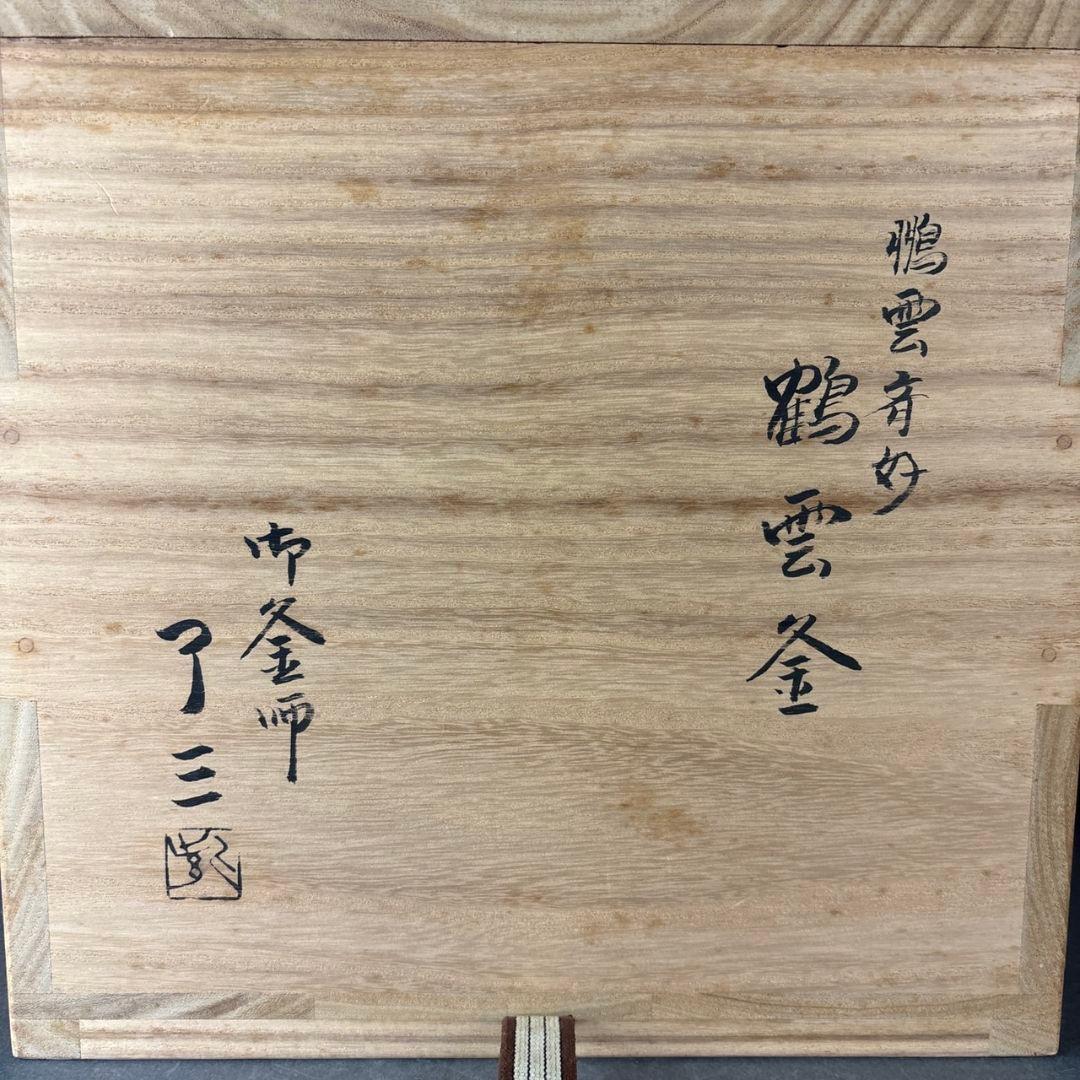 鵬雲斎好
鶴雲釜
御釜師
了三